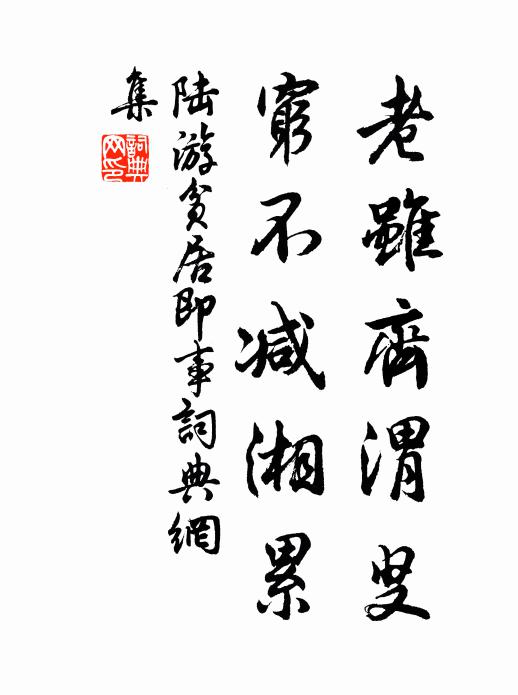 老雖齊渭叟
窮不减湘累
陸游貧居即事詞典網
集
詞典
网印